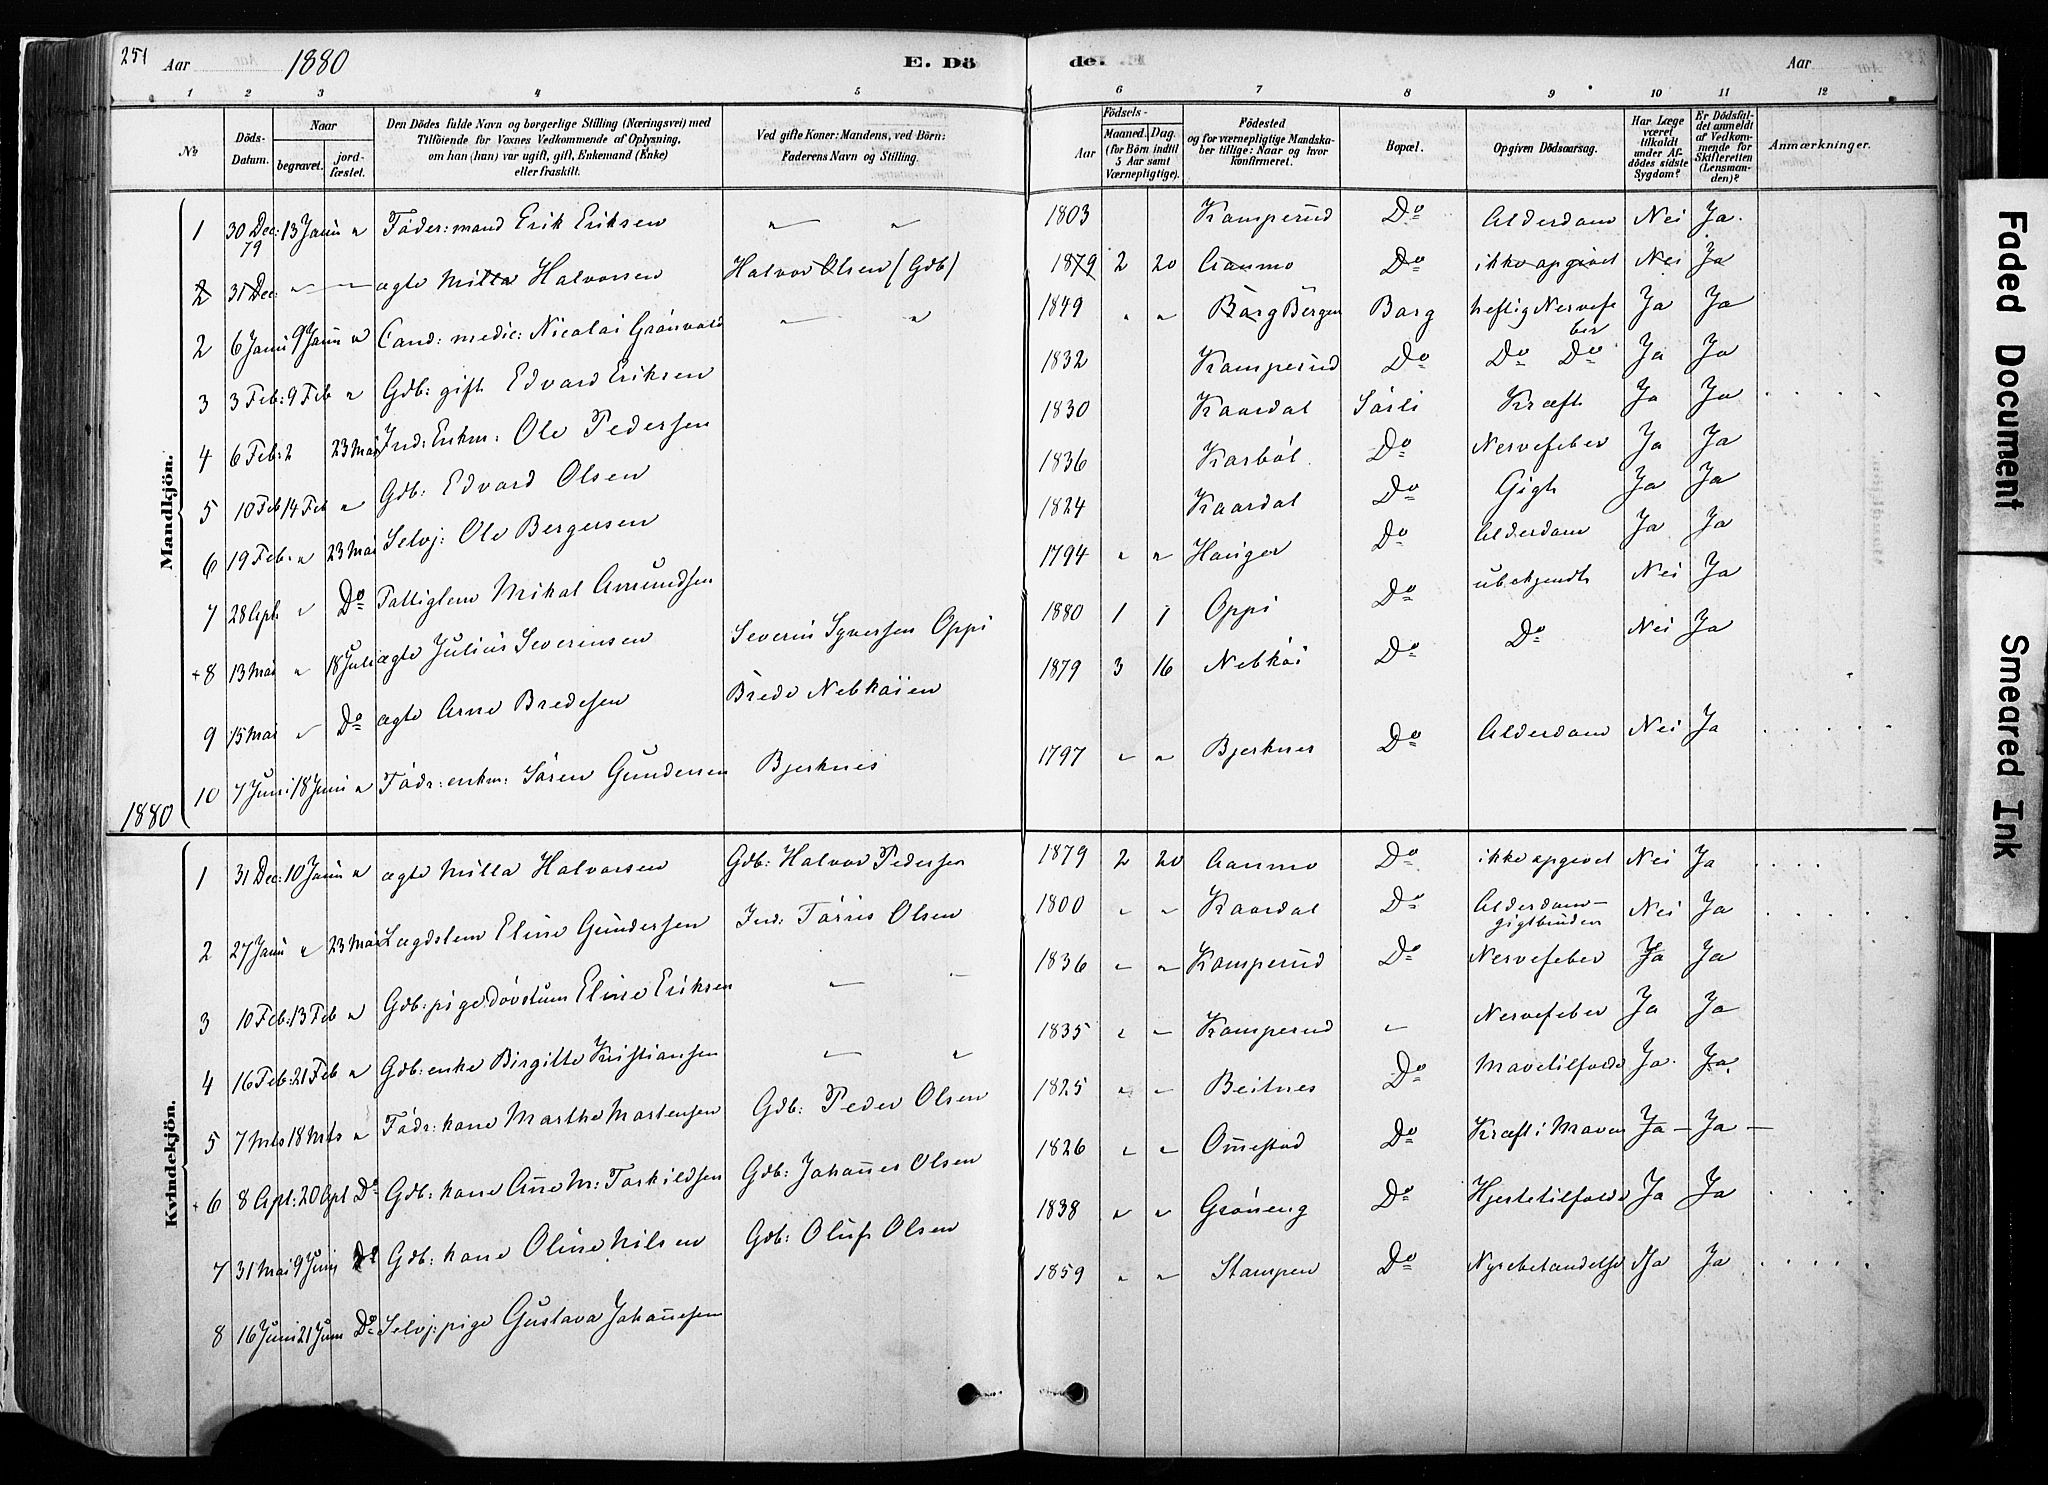 251 Aar 1880 E. Dö
1 2 3 4 5
No
Döds-Datum.
Naar
begravet.
jord-fæstet.
Den Dödes fulde Navn og borgerlige Stilling (Næringsvei) med
Tilföiende for Voxnes Vedkommende af Oplysning,
om han (hun) var ugift, gift, Enkemand (Enke)
eller fraskilt.
Ved gifte Koner: Mandens, ved Börn:
Faderens Navn og Stilling.
de. Aar
6 7 8 9 10 11 12
Födsels-
Aar
Maaned. Dag.
(for Börn indtil
5 Aar samt
Værnepligtige).
Födested
og for værnepligtige Mandska-
ber tillige: Naar og hvor
konfirmeret.
Bopæl.
Opgiven Dödsaarsag.
Har Læge
været
tilkaldt
under Af-
dödes sidste
Sygdom?
Er Dödsfal-
det anmeldt
af Vedkom-
mende for
Skifteretten
(Lensman-
den)?
Anmærkninger.
Mandkjön.
1 30 Dec: 79 13 Janu " Föder: mand Erik Eriksen " " 1803 Kamperud Do Alderdom Nei Ja.
2 31 Dec: " " ægte Milla Halvorsen Halvor Olsen (Gdb) 1879 2 20 Aanmo Do ikke opgivet Nei Ja
2 6 Janu 9 Janu " Cand: medic: Nicolai Grönvold " " 1849 " " Borg Bergen Borg heftig Nervefeber Ja Ja
3 3 Feb: 9 Feb " Gdb: gift Edvard Eriksen 1832 Kamperud Do Do Do Ja Ja
4 6 Feb: 2 23 Mai Ind: Enkm: Ole Pedersen 1830 Kaardal Sörli Kræft Ja Ja
5 10 Feb 14 Feb " Gdb: Edvard Olsen 1836 Karböl Do Nervefeber Ja Ja
6 19 Feb. " 23 Mai Selvj: Ole Bergersen 1824 Kaardal Do Gigt Ja Ja
7 28 Apl. " Do Fattiglem Mikal Amundsen 1794 " " Hauger Do Alderdom Ja Ja
+8 13 Mai " 18 Juli ægte Julius Severinsen Severin Syversen Oppi 1880 1 1 Oppi Do ubekjendt Nei Ja
9 15 Mai " Do ægte Arne Bredesen Brede Nebköien 1879 3 16 Nebköi Do Do Nei Ja
10 7 Juni 18 Juni " Födr: enkm: Sören Gundersen Bjerknes 1797 " " Bjerknes Do Alderdom Nei Ja
1880
Kvindekjön.
1 31 Dec: 10 Janu " ægte Milla Halvorsen Gdb: Halvor Pedersen 1879 2 20 Aanmo Do ikke opgivet Nei Ja
2 27 Janu " 23 Mai Lægdslem Eline Gundersen Ind: Törris Olsen 1800 " " Kaardal Do Alderdom- gigtbunden Nei Ja
3 10 Feb. 13 Feb " Gdb: pige Dövstum Eline Eriksen " 1836 " " Kamperud Do Nervefeber Ja Ja
4 16 Feb: 21 Feb " Gdb: enke Birgitte Kristiansen " " 1835 " " Kamperud " Nervefeber Ja Ja
5 7 Mts 18 Mts " Födr: kone Marthe Mortensen Gdb: Peder Olsen 1825 " " Beitnes Do Mavetilfælde Ja. Ja
+6 8 Apl: 20 Apl Do Gdb: kone Anne M: Torkildsen Gdb: Johannes Olsen 1826 " " Ommestad Do Kræft i Maven Ja - Ja -
7 31 Mai 9 Juni Do Gdb: kone Oline Nilsen Gdb: Oluf Olsen 1838 " " Gröneng Do Hjertetilfælde Ja Ja
8 16 Juni 21 Juni Do Selvj: pige Gustava Johannesen 1859 " " Stampen Do Nyrebetændelse Ja Ja
Faded Document
Smeared Ink